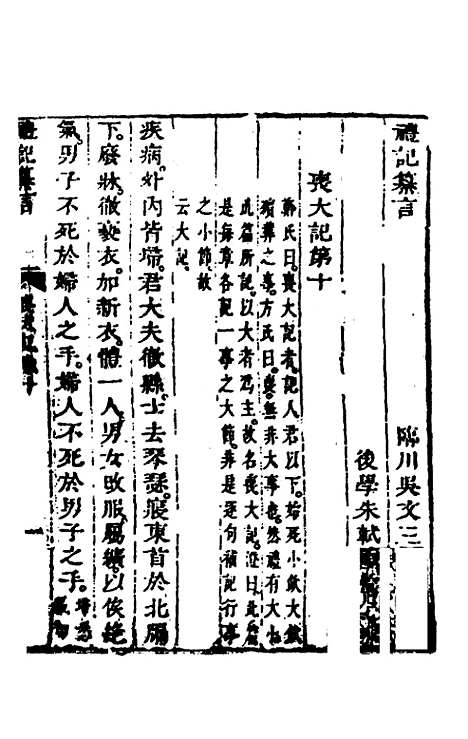 禮記纂言
臨川吳文正
後學朱軾
喪大記第十
鄭氏曰喪大記者記人君以下始死小斂大斂
殯葬之事方氏曰喪無非大事也然禮有大小
此篇所記以大者爲主故名喪大記澄曰此篇
是每章各記一事之大節非是逐句補記行事
之小節故
云大記
疾病外內皆埽君大夫徹縣士去琴瑟寢東首於北牖
下廢牀徹褻衣加新衣體一人男女改服屬纊以俟絶
氣男子不死於婦人之手婦人不死於男子之手
禮記纂言
一